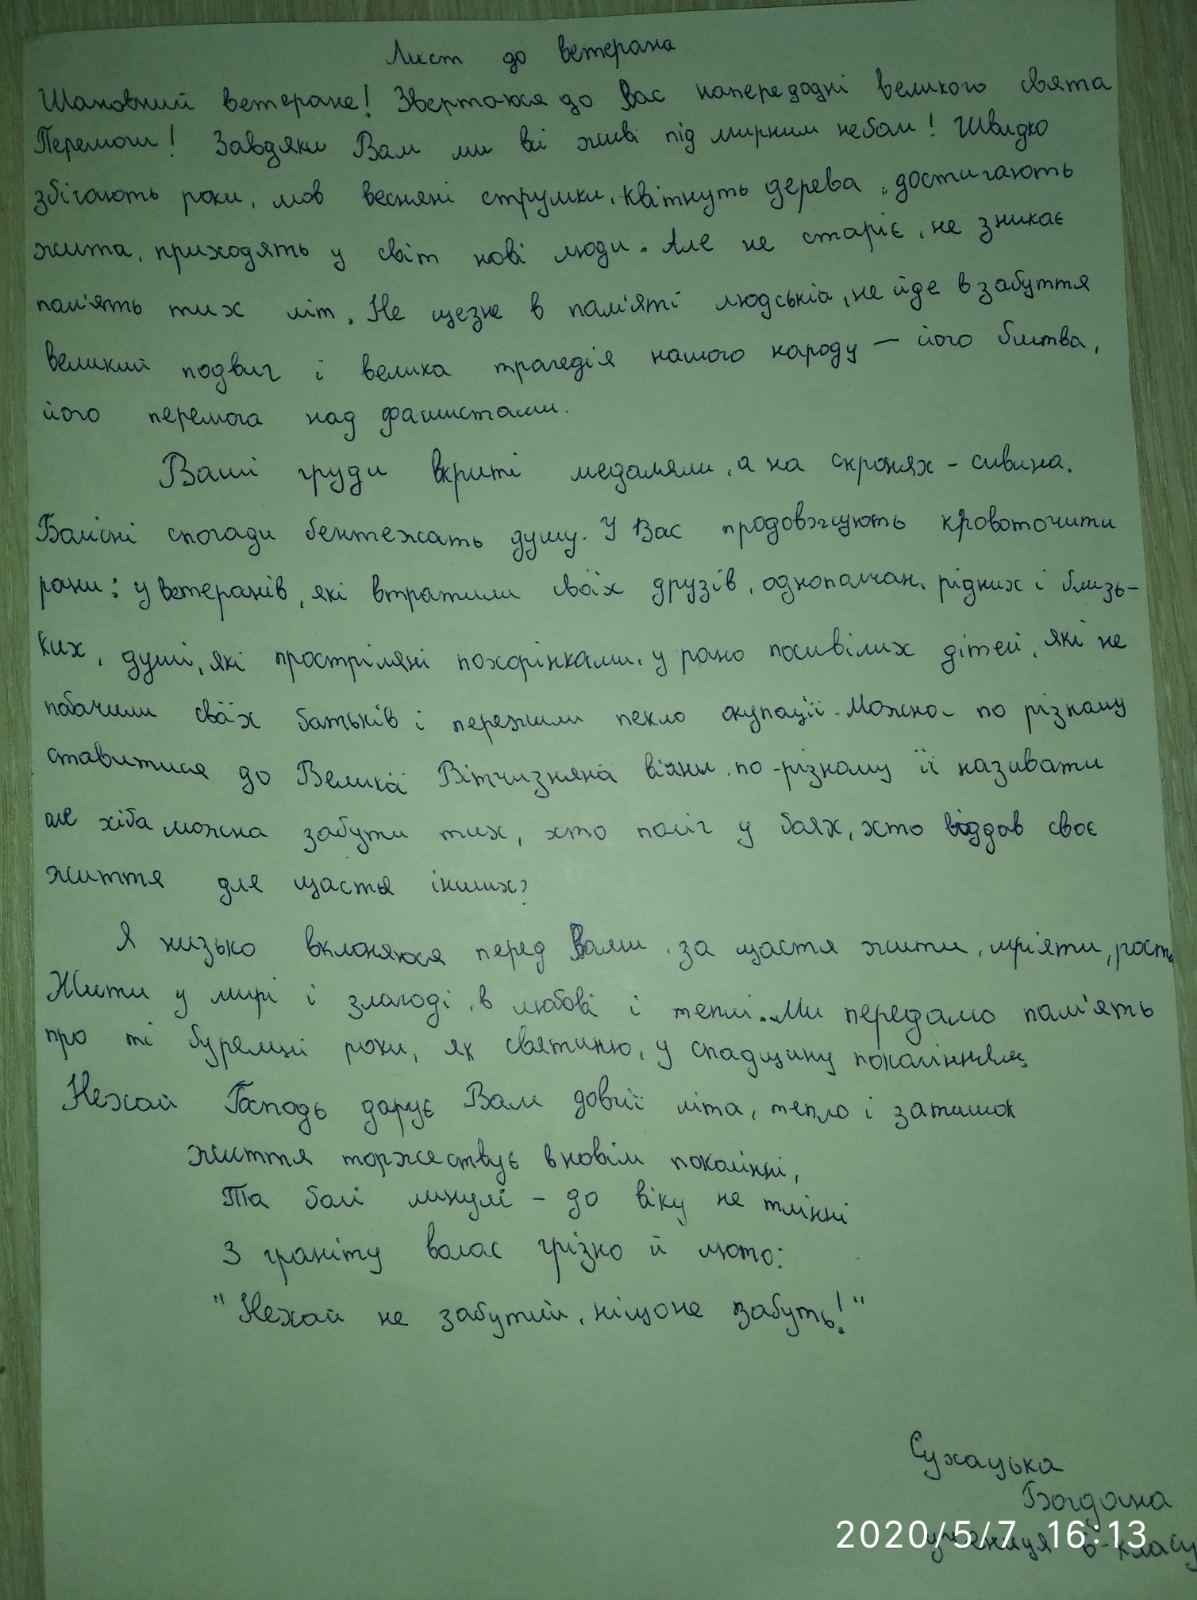 Лист до ветерана
Шановний ветеране! Звертаюся до Вас напередодні великого свята
Перемоги! Завдяки Вам ми всі живі під мирним небом! Швидко
збігають роки, мов весняні струмки. Квітнуть дерева, достигають
жита, приходять у світ нові люди. Але не старіє, не зникає
пам'ять тих літ. Не щезне в пам'яті людській, не йде в забуття
великий подвиг і велика трагедія нашого народу – його битва,
його перемога над фашистами.
Ваші груди вкриті медалями, а на скронях - сивина.
Болісні спогади бентежать душу. У Вас продовжують кровоточити
рани: у ветеранів, які втратили своїх друзів, однополчан, рідних і близь-
ких, душі, які простріляні похорінками, у рано посивілих дітей, які не
побачили своїх батьків і пережили пекло окупації. Можна по різному
ставитися до Великої Вітчизняної війни, по-різному її називати
але хіба можна забути тих, хто поліг у боях, хто віддав своє
життя для щастя інших?
Я низько вклоняюся перед Вами, за щастя жити, мріяти, рости
Жити у мирі і злагоді, в любові і теплі. Ми передамо пам'ять
про ті буремні роки, як святиню, у спадщину поколінням
Нехай Господь дарує Вам довгії літа, тепло і затишок
життя торжествує в новім поколінні,
Та болі минулі - до віку не тлінні
З граніту волає грізно й люто:
"Нехай не забутий, ніщо не забуть!"
Сухацька
Богдана
учениця 6-класу
2020/5/7 16:13